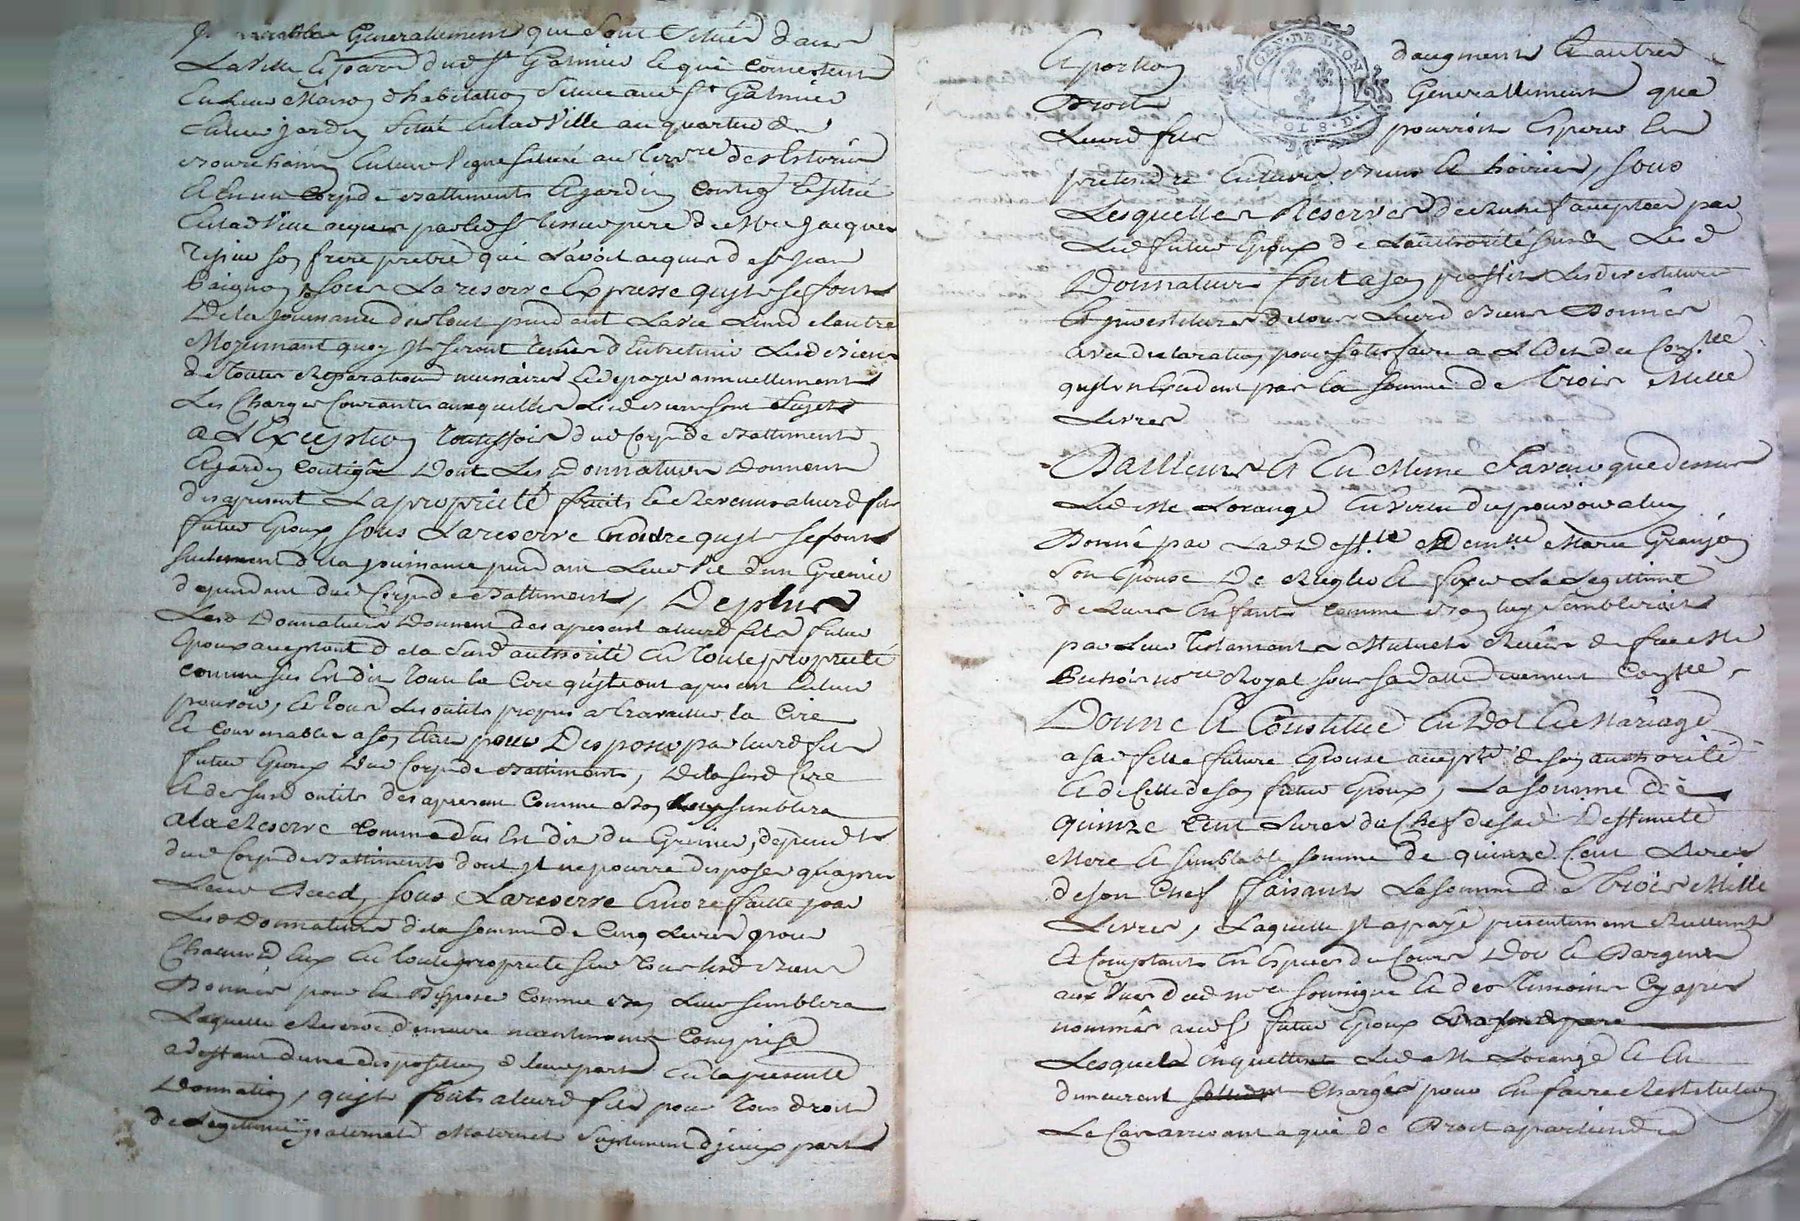 Generallement que sont situés dans
La Ville & parr. dud. St Galmier & qui consistent
En une Maison d'habitation située aud. St Galmier
un jardin situé en lad. Ville au quartier de
En une vigne située au terr.re des
& en un Corp de Battiments & jardin contigu & situé
En lad. Ville acquis par led. Sr père de Mre Jacques
son frère prêtre qui l'avoit acquis de Sr Jean
sous La reserve Expresse qu'ils se font
De la jouissance du tout pendant La vie L'un d L'autre
Moyennant quoy ils seront tenus d'Entretenir Lesd. Biens
de toutes Reparations necessaires & de payer annuellement
Les Charges Courantes auxquelles Lesd. Biens sont Sujets
a L'Exception toutesfois dud. Corp de Battiments
& jardin contigus Dont Les Donnateurs Donnent
des apresent La proprieté fruits & Revenus aud. fils
futur Epoux, sous La reserve qu'ils se font
seulement de la jouissance pendant Leur Vie d'un Grenier
dependant dud. Corp de Battiments, De plus
Lesd. Donnateurs Donnent des apresent a leurd. fils futur
Epoux acceptant de la Susd. authorité En Toute proprieté
comme sus Est dit Toute la Cire qu'ils ont apresent En leur
pouvoir, & Tous Les outils propres a travailler la Cire
& convenables a son Etat pour Disposer par leurd. fils
futur Epoux Dud. Corp de Battiments, De lad. Cire
& desd. outils des apresent Comme Bon luy semblera
a la Reserve comme dus Est dit du Grenier, depend.t
dud. Corp de Battiments dont il ne pourra disposer qu'apres
Leur Decéd, sous La reserve Encore faitte par
Lesd. Donnateurs de la somme de Cinq Livres pour
Chacun d'Eux En toute proprieté sur Tous lesd. Biens
Donnés pour En Disposer Comme Bon Leur semblera
Laquelle Reserve demeure neantmoins Comprise
a deffaut d'une disposition de leur part En la presente
Donnation, qu'ils font a leurd. fils pour Tous droits
de Legitime paternels & Maternels Suplement d'jceux part
& portion d'augment & autres
Droits Generallement que
Leurd. fils pourroit Esperer &
pretendre En leurs Biens & hoiries, sous
Lesquelles Reserves acceptées par
Led. futur Epoux de L'authorité susd. Lesd.
Donnateurs font a son proffit Les devestitures
& investitures de tous Leurs Biens Donnés
avec declaration pour satisfaire a L'Edit du Con.lle
qu'ils n'Excedent pas la somme de Trois Mille
Livres
D'ailleurs & En Meme Faveur que dessus
Led. Mre Lorange En Vertu du pouvoir a luy
Donné par Lad. Deff.te Dem.lle Marie Granjon
son Epouse De Regler & fixer La Legittime
de Leurs Enfants comme Bon luy sembleroit
par Leur Testament Mutuel Receu de feu Me
no.re Royal sous sa datte
Donne & Constitue En Dot & Mariage
a sad. fille future Epouse accept.te de son authorité
& de Celle de son futur Epoux, La somme de
quinze Cent Livres du Chef de sad. Deffunte
Mere & semblable somme de quinze Cent Livres
de son Chef faisant La somme de Trois Mille
Livres, Laquelle il a payé presentement Reellement
& Comptant En Especes de Cours D'or & D'argent
aux Vues dud. no.re soussigné & des Temoins Cy apres
nommés aud. Sr futur Epoux
Lesquels Led. Mre Lorange & En
demeurent Chargés pour En faire Restitution
Le Cas arrivant a qui de Droit apartiendra
GEN. DE LYON
SOLS